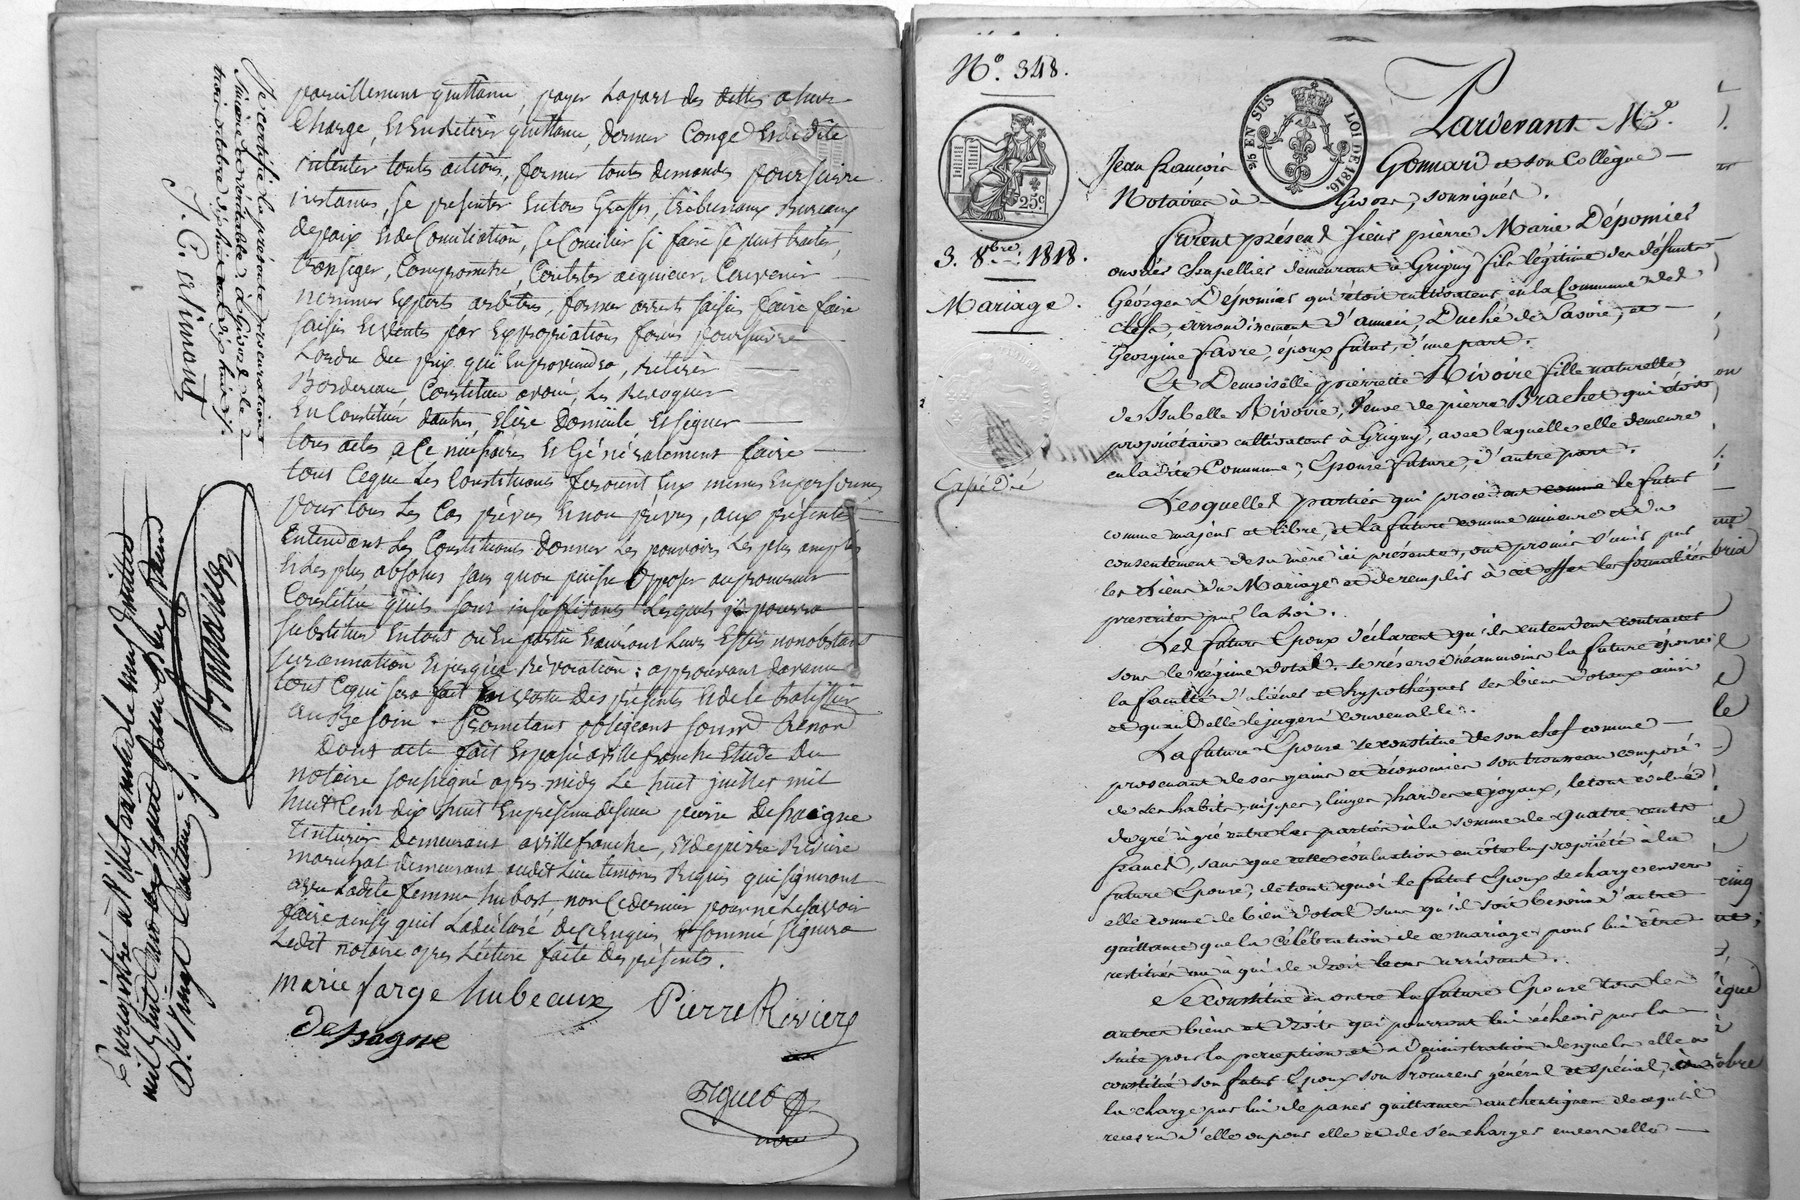 pareillement quittance, payer la part des dettes a leur
Charge, En retirer quittance, donner Congé
intenter touts actions, former touts demandes poursuivre
instances, se présenter En tous Greffes, tribunaux Bureaux
depaix Et de Conciliation, se Concilier si faire se peut traiter,
transiger, Compromettre, Contester acquiescer, Convenir
nommer Experts arbitres former arrets saisies faire faire
saisies Et ventes par Expropriations forcés poursuivre
Lordre du prix qui En proviendra, retirer
Bordereau, Constituer avoué, Les Revoquer
En Constituer dautres, Elire Domicile Et signer
tous actes a Ce nécessaires Et Généralement faire
tous Ceque Les Constituants feroient Eux mêmes En personnes
pour tous Les Cas prévus Et non prévus, aux présentes
Entendant Les Constituants donner Les pouvoirs Les plus amples
Et des plus absolus sans quon puisse Opposer
quils sont insuffisants Lesquels il pourra
substituer En tout ou En partie Et auront Leurs Effets nonobstant
surannation Et jusqua Révocation : approuvant davance
tous Cequi sera fait En vertu des présents Et de le Ratiffier
au Besoin - Promettant obligeant soumt Renont
Dont acte fait Et passé a villefranche Etude Du
notaire soussigné apres midy Le huit juillet mil
huit Cent dix huit En présence de pierre Despaigne
teinturier Demeurant a villefranche, Et de pierre Riviere
marechal demeurant audit Lieu temoins Requis qui signeront
avec Ladite femme hubost, non Cedernier pour ne Le savoir
faire ainsy quil La déclaré De Cenquis Et sommé signera
Ledit notaire apres Lecture faite Des présents.
marie farge hubeaux Pierre Riviere
despagne
Piguet
nore
Je certifie la présente procuration
Sincère et véritable, à Givors le
trois octobre dix huit cent dix huit.
J. C. alimant
Enregistré à Villefranche le neuf Juillet
mil huit cent dix huit
N°. 348.
25c.
3. 8bre 1818.
Mariage.
Expédié
2/5 EN SUS LOI DE 1816.
Pardevant Me.
Jean François Gonnard et son Collègue
Notaires à Givors, soussignés.
Furent présens Sieur pierre Marie Dépomier
ouvrier Chapellier demeurant à Grigny fils légitime des défunts
Géorges Dépomier qui étoit cultivateur en la Commune des
Clefs, arrondissement d'anneci, Duché de Savoie, et
Georgine favre, époux futur, d'une part.
Et Demoiselle pierrette Rivoire fille naturelle
de Isabelle Rivoire, Veuve de pierre Brachet qui étoit
propriétaire cultivateur à Grigny, avec laquelle elle demeure
en la dite Commune, Epouse future, d'autre part.
Lesquelles parties qui procèdent comme le futur
comme majeur et libre, et la future comme mineure et du
consentement de sa mère ici présente, ont promis s'unir par
les Liens du Mariage et de remplir à cet effet les formalités
prescrites par la Loi.
Les futurs Epoux déclarent qu'ils entendent contracter
sous le régime dotal. Se réserve néanmoins la future épouse
la faculté d'aliéner et hypothéquer ses biens dotaux ainsi
et quand elle le jugera convenable.
La future Epouse se constitue de son chef comme
provenant de ses gains et économies son trousseau composé
de ses habits, nippes, linges, hardes et joyaux, le tout évalué
de gré à gré entre les parties à la somme de quatre cents
francs, sans que cette évaluation en ôte la propriété à la
future Epouse, de tout quoi le futur Epoux se charge envers
elle comme de bien dotal sans qu'il soit besoin d'autre
quittance que la célébration de ce mariage, pour lui être
restitué ou à qui de droit le cas arrivant.
Se constitue en outre la future Epouse tous les
autres biens et droits qui pourront lui échoir par la
suite pour la perception et administration desquels elle a
constitué son futur Epoux son Procureur général et spécial, à
la charge par lui de passer quittances authentiques de ce qu'il
recevra d'elle ou pour elle et de s'en charger envers elle